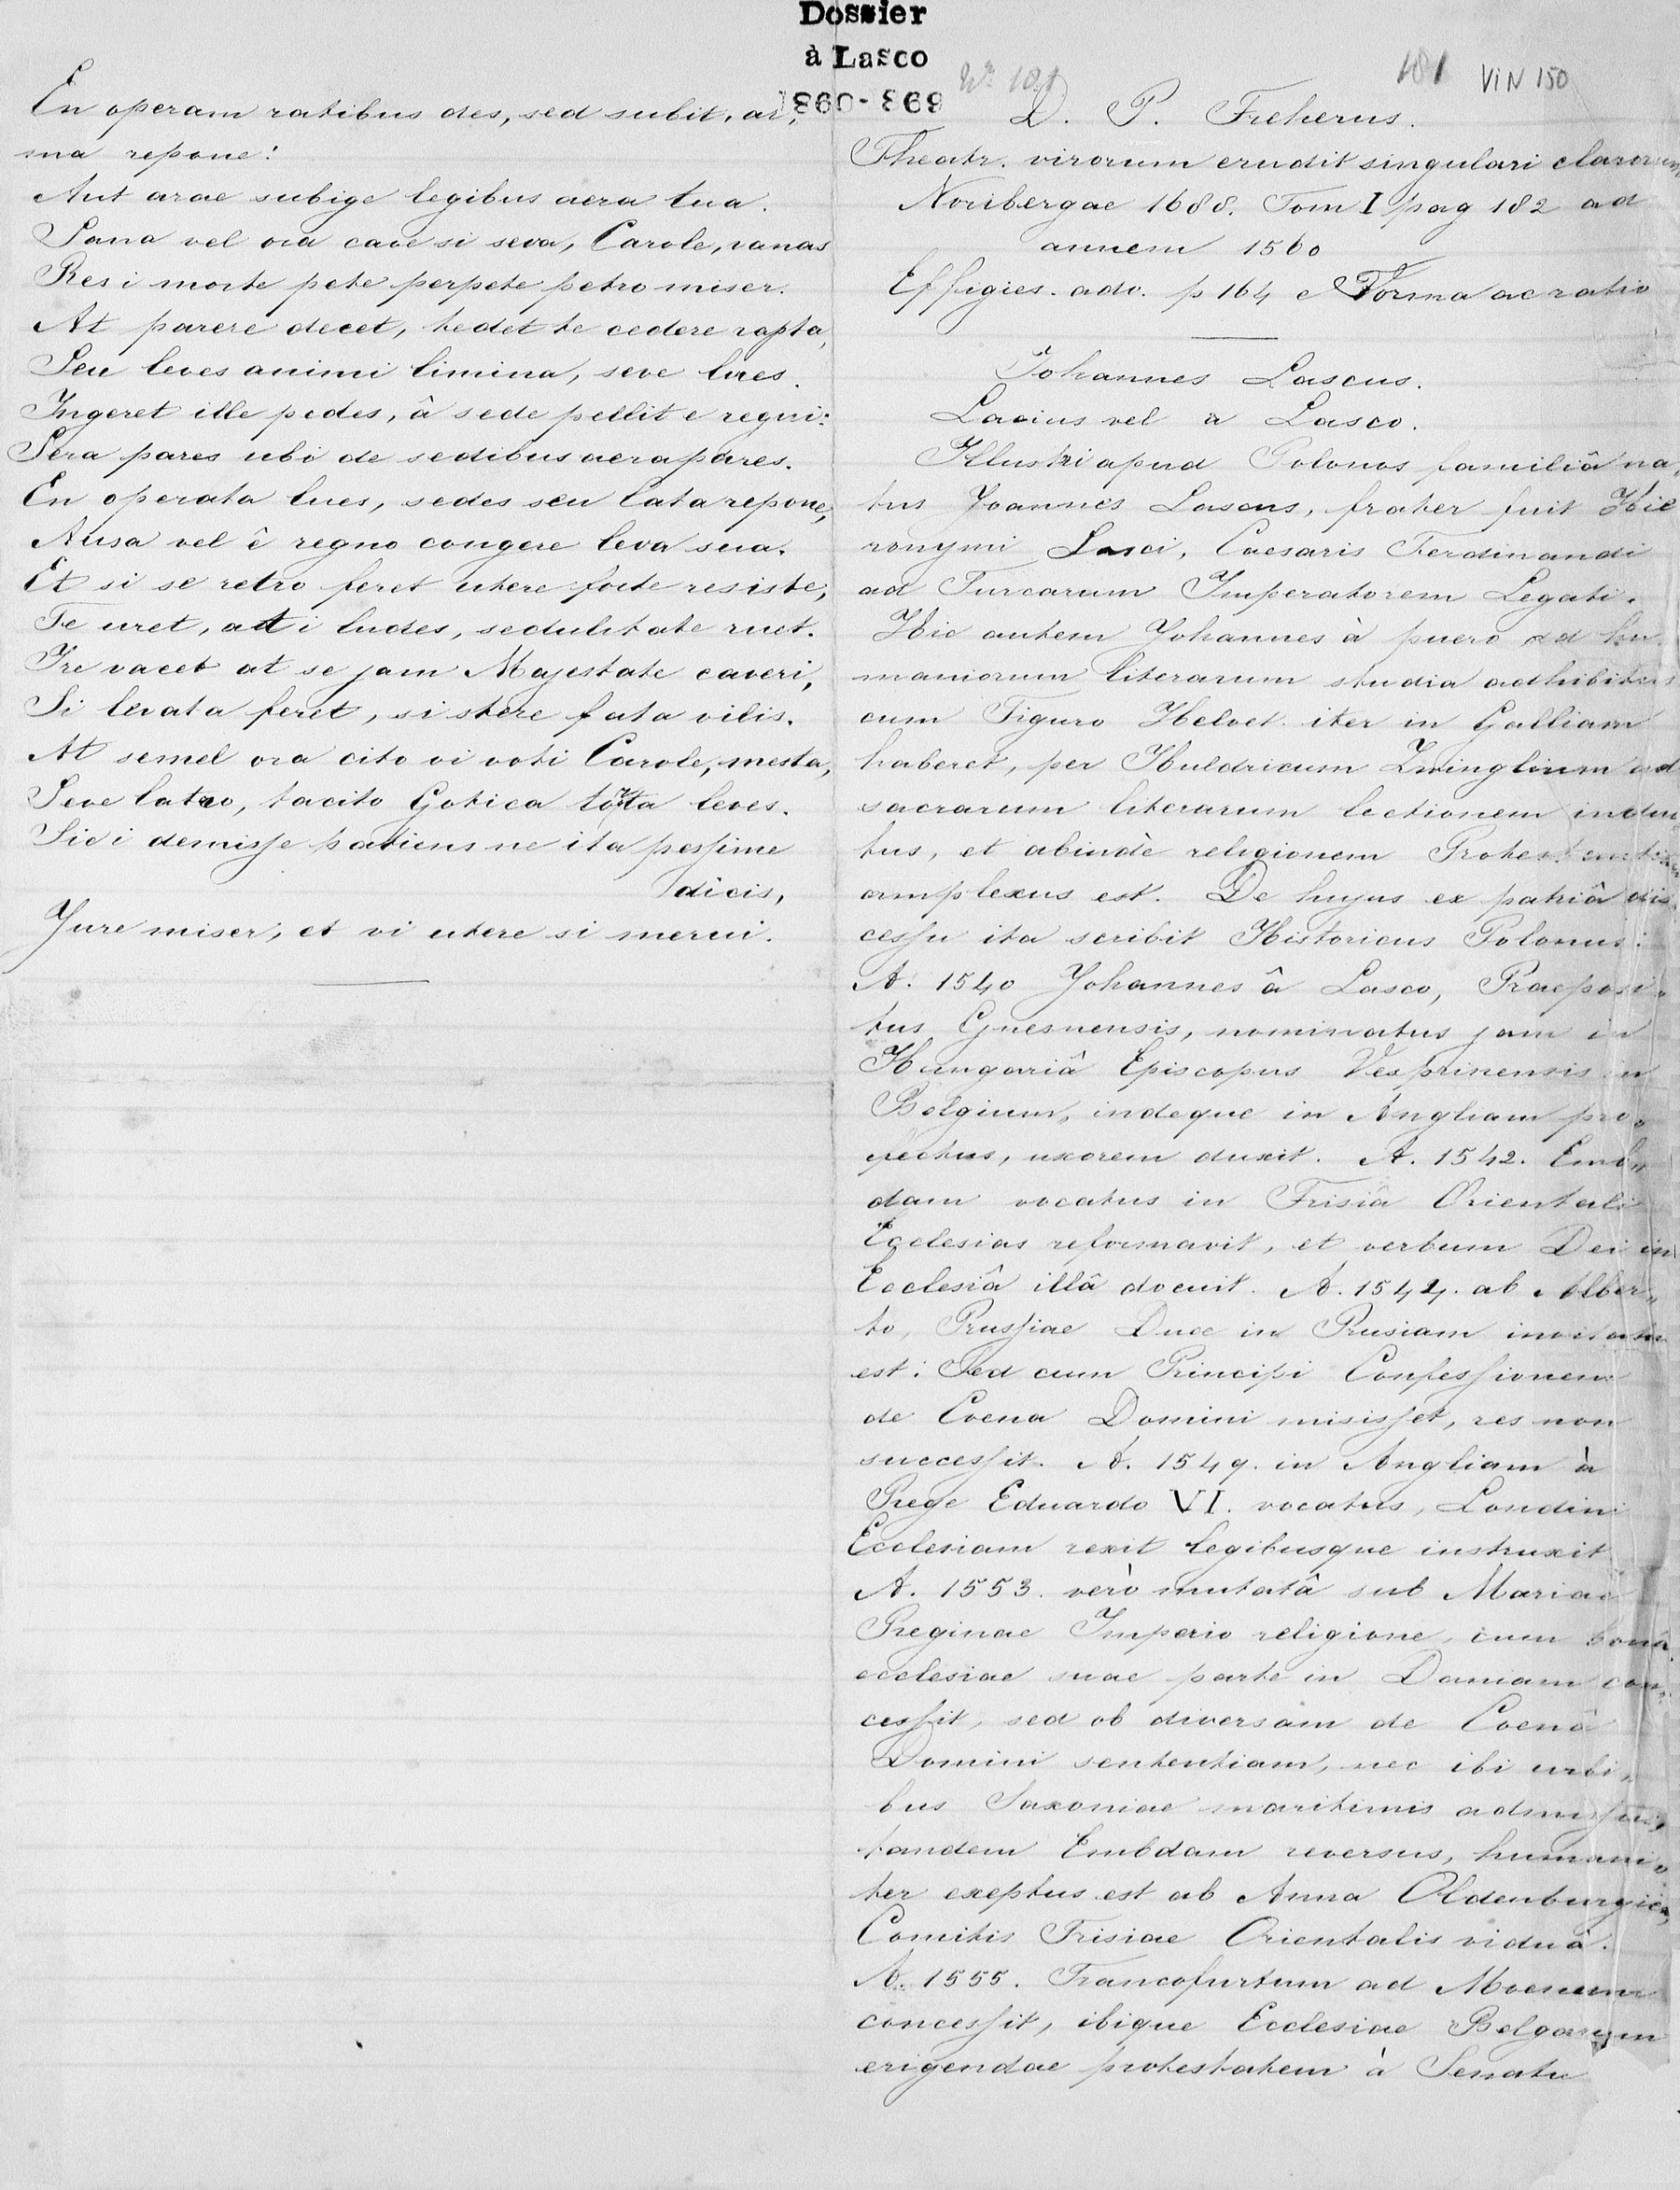 Dossier
à Lasco
1860-869
En operam ratibus des, sed subit, ar,
ma repone!
Aut arae subige legibus aera tua.
Sana vel ora cave si seva, Carole, vanas
Res i morte pete perpete petro miser.
At parere decet, tedet te cedere rapta,
Seu leves animi limina, seve lues.
Ingeret ille pedes, â sede pellit e regni:
Sera pares ubi de sedibus aera pares.
En operata lues, sedes seu lata repone,
Ausa vel ê regno congere leva sua.
Et si se retro feret utere forte resiste,
Te uret, at i ludes, sedulitate ruet.
Ire vacet at se jam Majestate caveri,
Si levata feret, sistere fata vilis.
At semel ora cito vi voti Carole, mesta,
Seve latro, tacito Gotica tota leves.
Sic i demisse patiens ne ita pessime
dicis,
Jure miser, et vi utere si merui.
No 181
181 VIN 150
D. P. Freherus.
Theatr. virorum erudit singulari clarorum
Noribergae 1688. Tom I pag 182 ad
annem 1560
Effigies. adv. p 164 e Forma ac ratio
Johannes Lascus.
Lacius vel a Lasco.
Illustri apud Polonos familiâ na,
tus Joannes Lascus, frater fuit Hie
ronymi Lasci, Caesaris Ferdinandi
ad Turcarum Imperatorem Legati.
Hic autem Johannes à puero ad hu
maniorum literarum studia adhibitus
cum Tiguro Helvet. iter in Galliam
haberet, per Huldricum Zwinglium ad
sacrarum literarum lectionem induc
tus, et abindè religionem Protestantium
amplexus est. De hujus ex patriâ dis
cessu ita scribit Historicus Polonus:
A. 1540 Johannes â Lasco, Praeposi,
tus Gnesnensis, nominatus jam in
Hungariâ Episcopus Vesprinensis in
Belgium, indeque in Angliam pro,
fectus, uxorem duxit. A. 1542. Emb,
dam vocatus in Frisiâ Orientali
Ecclesias reformavit, et verbum Dei in
Ecclesiâ illâ docuit. A. 1544. ab Alber,,
to, Prussiae Duce in Prusiam invitatus
est: Sed cum Principi Confessionem
de Coena Domini misisset, res non
successit. A. 1549. in Angliam à
Rege Eduardo VI. vocatus, Londini
Ecclesiam rexit legibusque instruxit
A. 1553. verò mutatâ sub Mariae
Reginae Imperio religione, cum bonâ
ecclesiae suae parte in Daniam con,
cessit, sed ob diversam de Coenâ
Domini sententiam, nec ibi urbi,
bus Saxoniae maritimis admissus,
tandem Embdam reversus, humani,
ter exeptus est ab Anna Oldenburgica,
Comitis Frisiae Orientalis viduâ.
A. 1555. Francofurtum ad Moenum
concessit, ibique Ecclesiae Belgarum
erigendae protestatem à Senatu